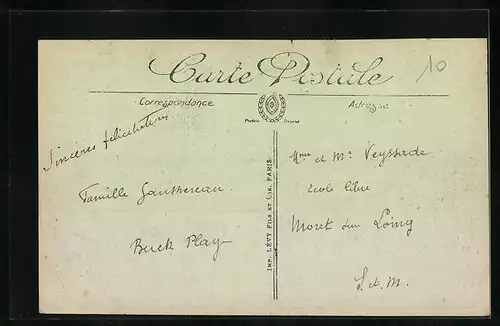 Carte Postale
10
Correspondance
Adresse
Sincères félicitations
Famille
Buck Play
IMP. LÉVY FILS ET CIE, PARIS.
Mme et Mr Veyssade
école libre
Moret sur Loing
S. et. M.